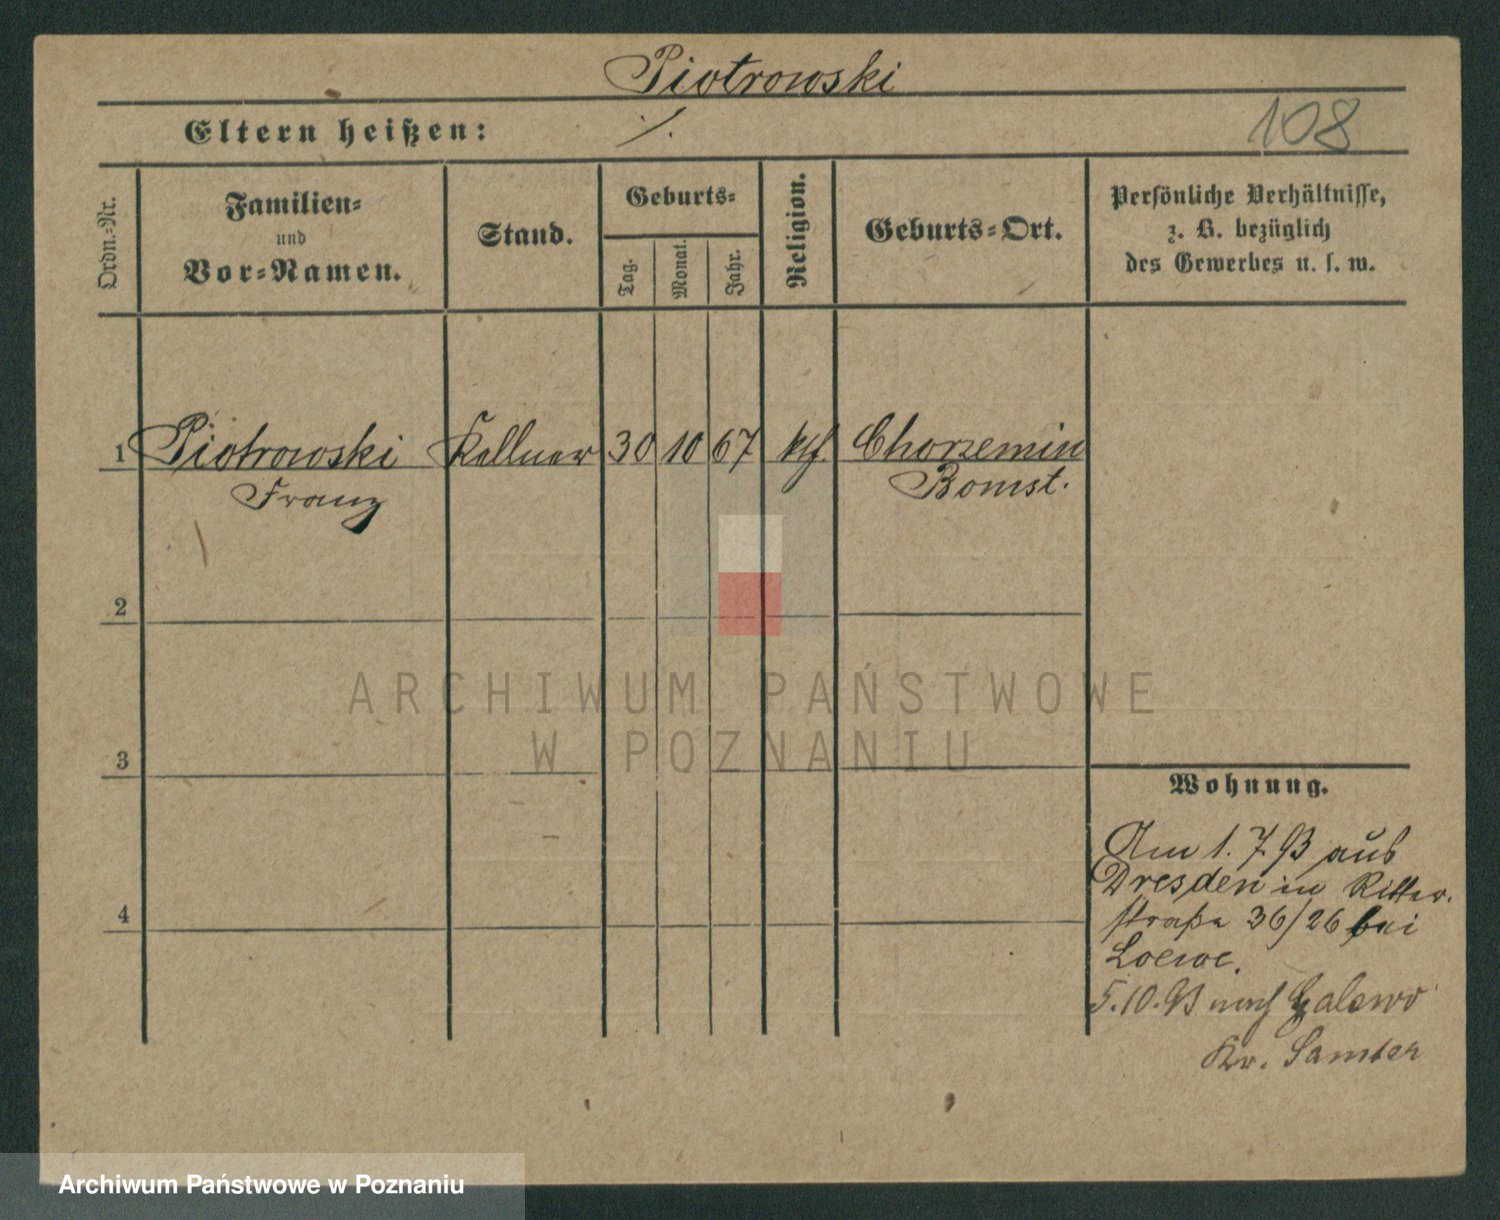 Piotrowski
Eltern heißen: ./.
108
Ordn.-Nr.
Familien-
und
Vor-Namen.
Stand.
Geburts-
Tag.
Monat.
Jahr.
Religion.
Geburts-Ort.
Persönliche Verhältnisse,
z. B. bezüglich
des Gewerbes u. s. w.
1 Piotrowski Kellner 30 10 67 kth. Chorzemin
Franz Bomst.
2
ARCHIWUM PAŃSTWOWE
W POZNANIU
3
Wohnung.
Am 1. 7. 93 aus
Dresden in Ritter-
straße 36/26 bei
Loewe.
4
5. 10. 93 nach Galewo
Kr. Samter
Archiwum Państwowe w Poznaniu